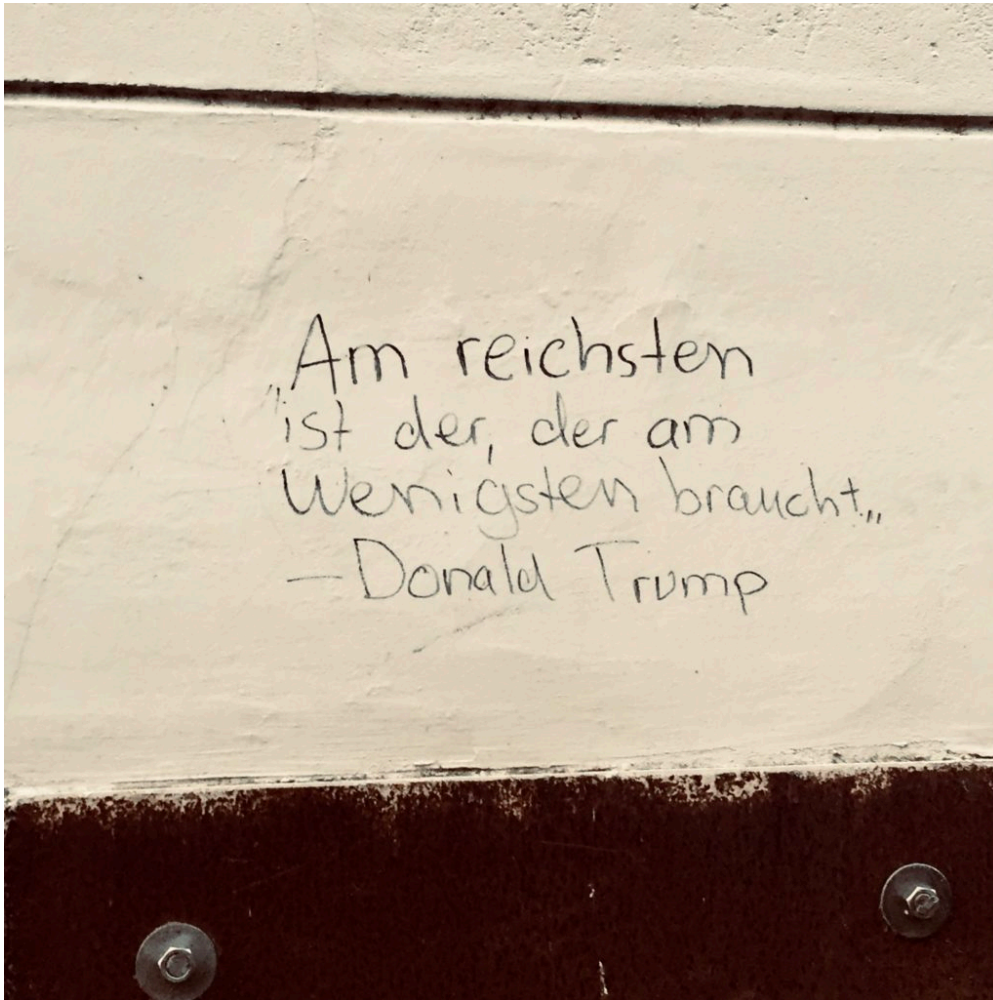 „Am reichsten
ist der, der am
Wenigsten braucht.„
—Donald Trump